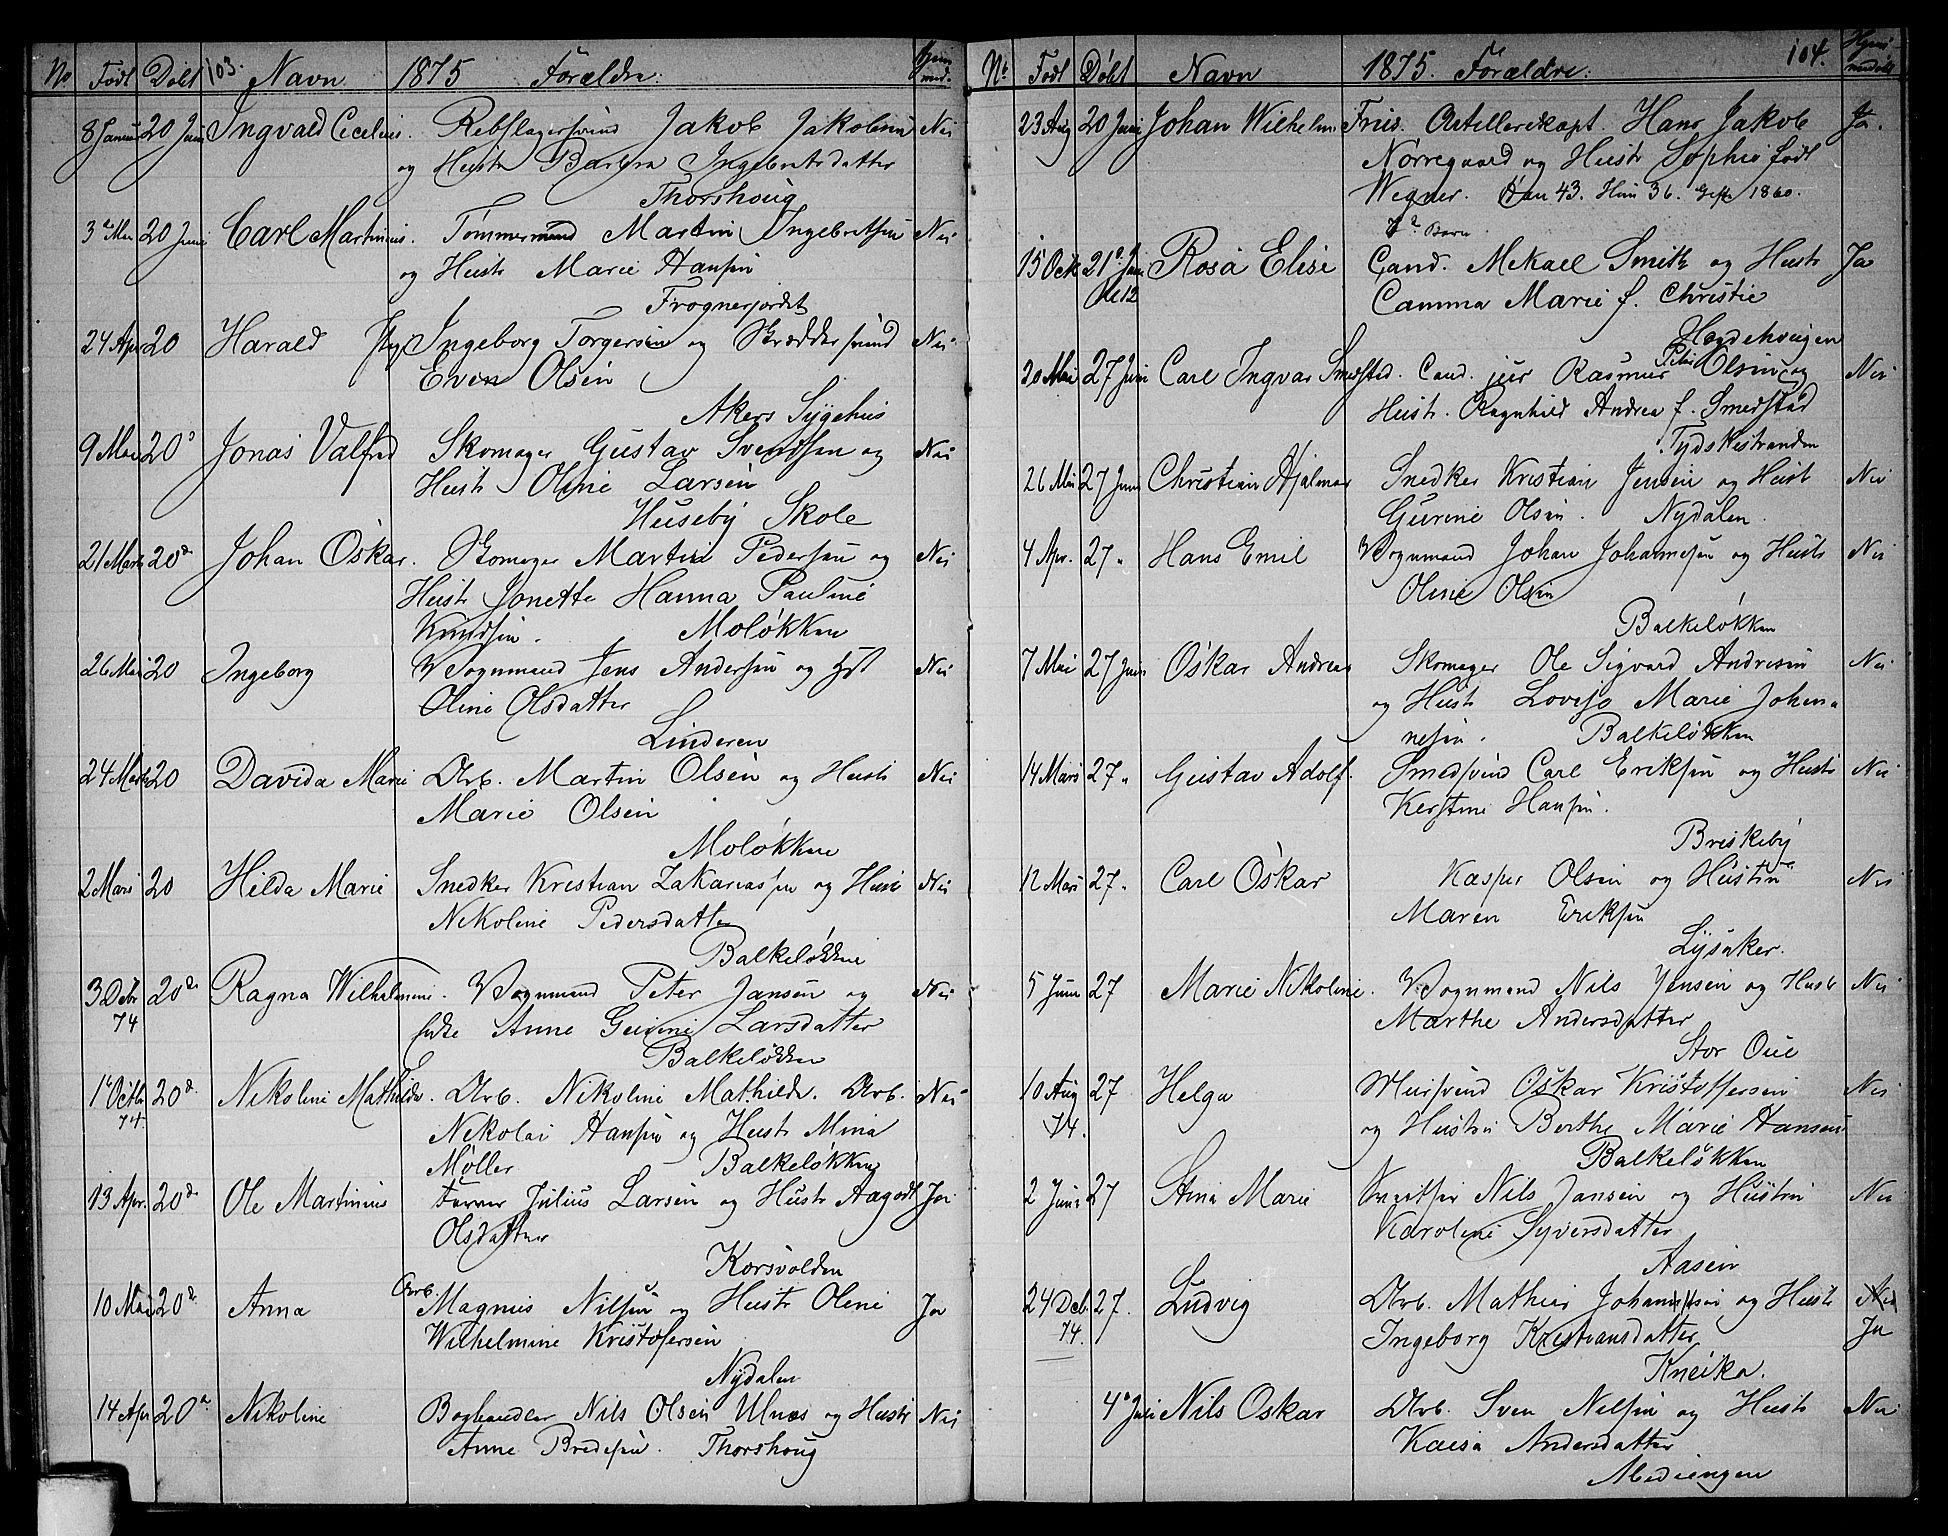 No Født Døbt 103. Navn. 1875 Forældre.
8 Januar 20 Juni Ingvald Cecelius. Rebslagersvend Jakob Jakobsen Nei
og Hustr Barbra Ingebretsdatter
Thorshoug
3 Mai 20 Juni Carl Martinius. Tømmermand Martin Ingebretsen Nei
og Hustr Marie Hansen
Frognerjordet
24 Apr 20 Harald Pige Ingeborg Torgersen og Skræddersvend Nei
Even Olsen
Akers Sygehus
9 Mai 20 Jonas Valfrid Skomager Gustav Svendsen og Nei
Hustr Oline Larsen
Huseby Skole
21 Marts 20de Johan Oskar. Skomager Martin Pedersen og Nei
Hustr Jonette Hanna Pauline
Knudsen. Moløkken
26 Mai 20 Ingeborg Vognmand Jens Andersen og Hst Nei
Oline Olsdatter
Linderen
24 Marts 20 Davida Marie Arb. Martin Olsen og Hustr Nei
Marie Olsen
Moløkken
2 Mars 20 Hilda Marie Snedker Kristian Zakariassen og Hust Nei
Nikoline Pedersdatter
Balkeløkken
3 Debr 20de Ragna Wilhelmine. Vognmand Peter Jansen og Nei
74 Anne Gurine Larsdatter
Balkeløkken
1 Octbr 20de Nikoline Mathilde. Arb. Nikoline Mathilde. Arb. Nei
74. Nikolai Hansen og Hustr Mina
Møller Balkeløkken
13 Apr. 20de Ole Martinius Julius Larsen og Hustr Aagodt Ja
Olsdatter
Korsvolden
10 Mai 20de Anna Arb. Magnus Nilsen og Hustr Oline Ja
Wilhelmine Kristofersen
Nydalen
14 Apr 20de Nikoline Boghandler Nils Olsen Ulnes og Hustr Nei
Anne Bredesen. Thorshoug
No Født Døbt Navn 1875. Forældre. 104. Hjemmedøbt
23 Aug 20 Juni Johan Wilhelm Friis. Artillerikapt. Hans Jakob Ja.
Nørregaard og Hustr Sophie født
Wegner. Han 43. Hun 36. Gift 1860.
7de Barn.
15 Octb 21de Juni Rosa Elise Cand. Mikael Smith og Hustr Ja
Kl 12 Camma Marie f. Christie
Hægdehougen
20 Mai 27 Juni Carl Ingvar Smedstad. Cand. jur Rasmus Peter Olsen og Nei
Hustr. Ragnhild Andrea f. Smedstad
Tydskestranden
26 Mai 27 Juni Christian Hjalmar Snedker Kristian Jensen og Hust Nei
Gurine Olsen. Nydalen.
4 Apr. 27 " Hans Emil Vognmand Johan Johannesen og Hustr Nei
Oline Olsen
Balkeløkken
7 Mai 27 Juni Oskar Andreas Skomager Ole Sigvard Andresen Nei
og Hustr Lovise Marie Johan=
nesen. Balkeløkken
14 Mars 27 " Gustav Adolf. Smedsvend Carl Eriksen og Hustr Nei
Kerstine Hansen.
Briskeby
12 Mars 27 " Carl Oskar Kasper Olsen og Hustru Nei
Maren Eriksen
Lysaker.
5 Juni 27 Marie Nikoline. Vognmand Nils Jensen og Hustr Nei
Marthe Andersdatter
Stor Oue
10 Aug 27 Helga Mursvend Oskar Kristoffersen Nei
74. og Hustru Berthe Marie Hansen
Balkeløkken
2 Juni 27 Stina Marie Nils Jansen og Hustru Nei
Karoline Syversdatter
Aasen
24 Deb. 27. Ludvig Arb. Mathias Johannessen og Hustr Nei
74. Ingeborg Kristiansdatter Ja
Kneika.
4 Juli Nils Oskar Arb. Sven Nelsen og Hustr Nei
Kaisa Andersdatter